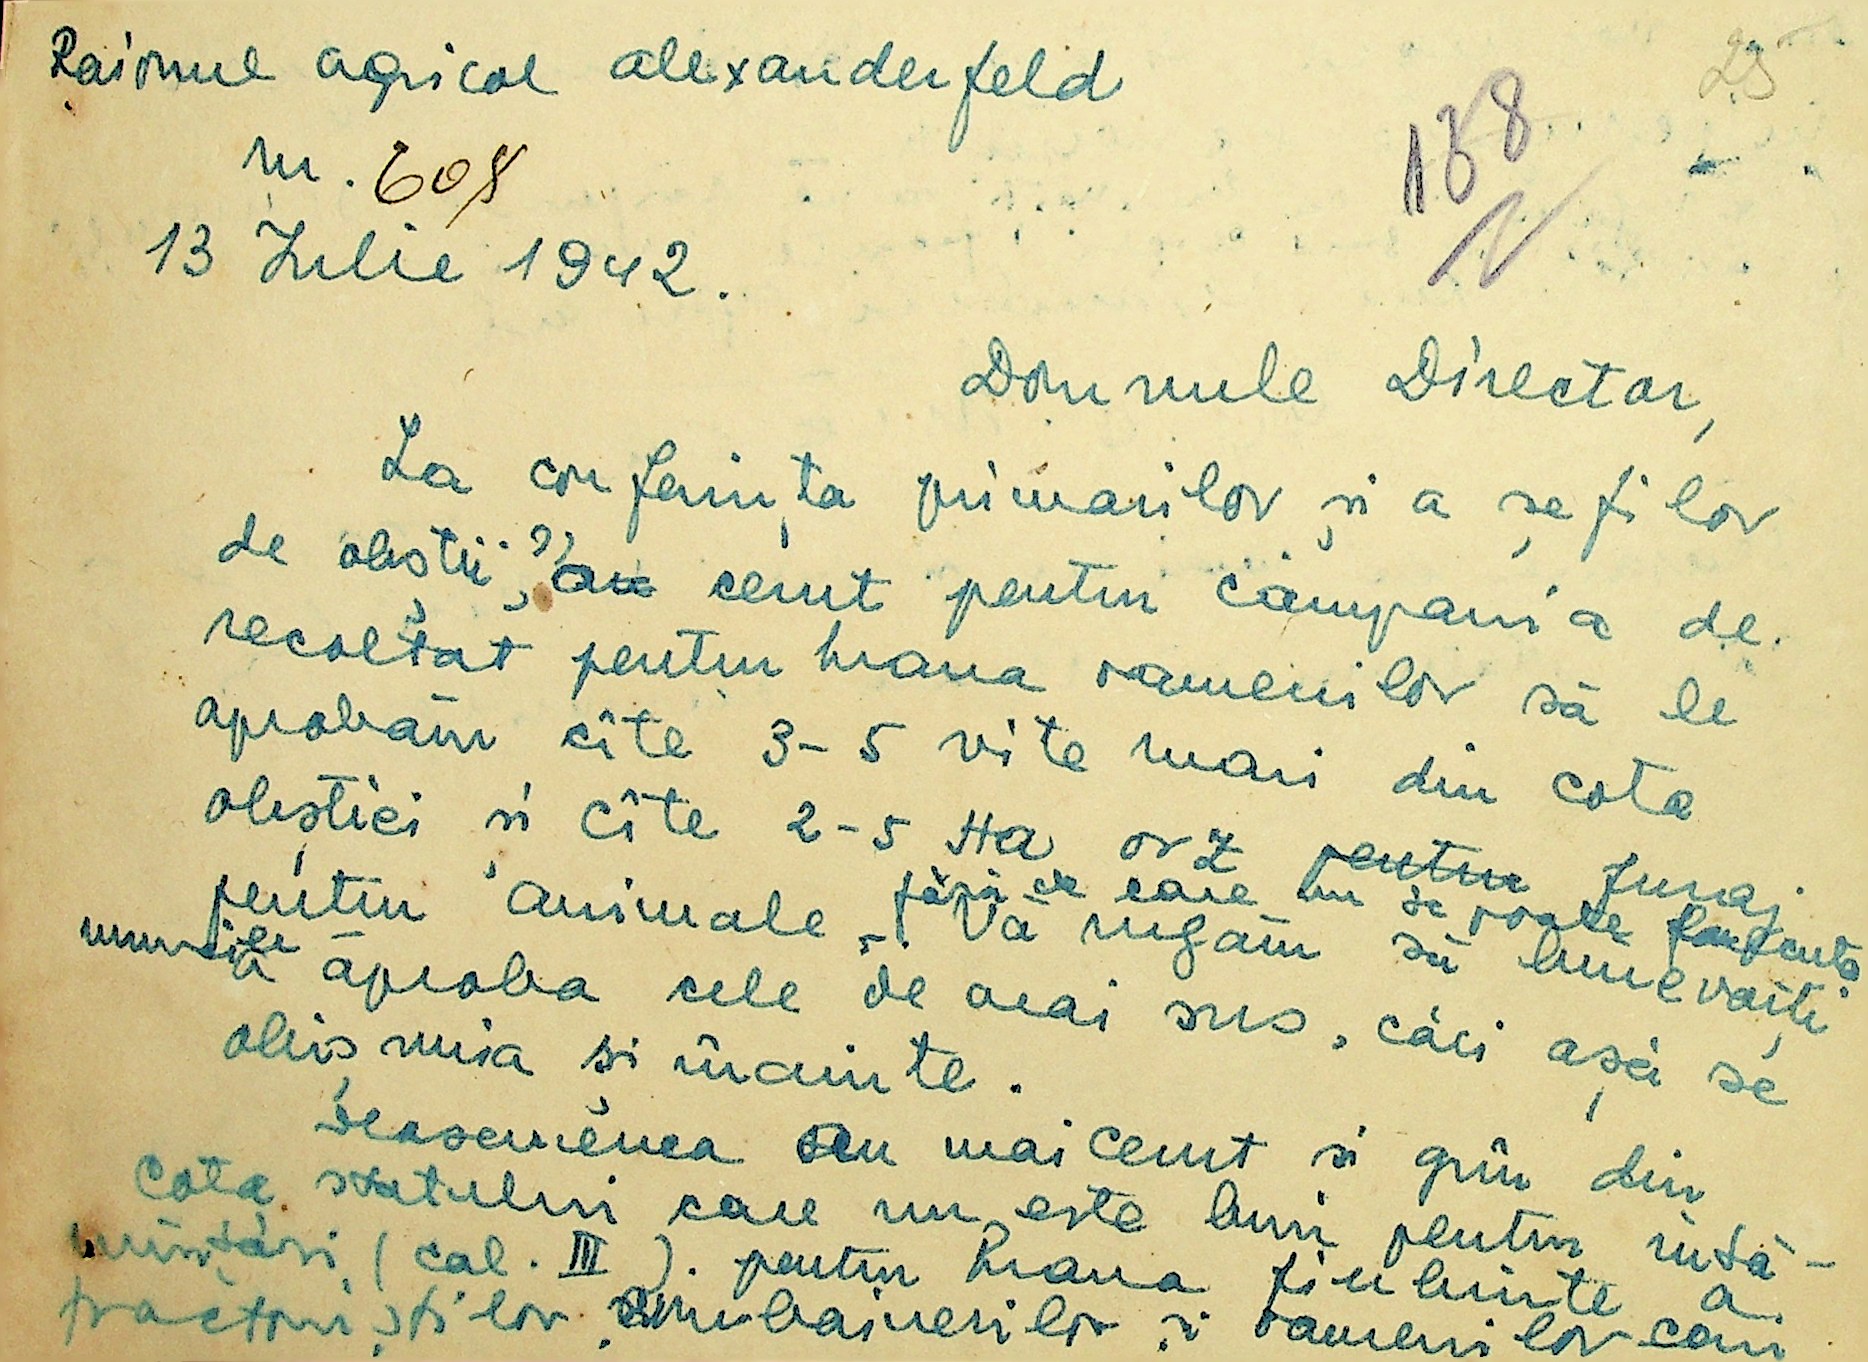 Raionul agricol alexanderfeld
25
nr. 608
188
13 Iulie 1942.
Domnule Director,
La conferința primarilor și a șefilor
de obștii, au cerut pentru câmpania de
recoltat pentru hrana oamenilor să le
aprobăm cîte 3-5 vite mari din cota
obștiei și cîte 2-5 Ha orz pentru furaj
pentru animale, fără de care nu se poate executa
muncile. Vă rugăm să binevoiți
a aproba cele de mai sus, căci așa se
obișnuia și înainte.
Deasemenea au mai cerut și grîu din
cota statului care nu este bun pentru însă-
mînțări (cal. III). pentru hrana fierbinte a
tractoriștilor, combainerilor și oamenilor cari